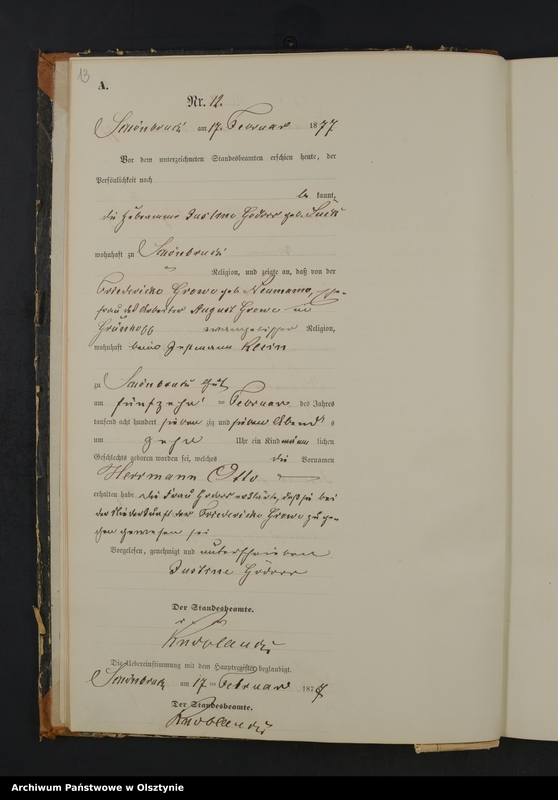 13
A.
Nr. 12.
Schönbruch am 17. Februar 1877
Vor dem unterzeichneten Standesbeamten erschien heute, der
Persönlichkeit nach
be kannt,
die Hebamme Justine geb.
wohnhaft zu Schönbruch
Religion, und zeigte an, daß von der
Friedericke Growe geb. Neumann, Ehe-
frau des Arbeiter August Growe
evangelischer Religion,
wohnhaft beim Klein
zu Schönbruch Gut
am fünfzehn ten Februar des Jahres
tausend acht hundert sieben zig und sieben Abends
um zehn Uhr ein Kind männ lichen
Geschlechts geboren worden sei, welches die Vornamen
Herrmann Otto
erhalten habe. die Frau erklärte, daß sie bei
der Niederkunft der Friedericke Growe zuge-
gen gewesen sei
Vorgelesen, genehmigt und unterschrieben
Justine
Der Standesbeamte.
Die Uebereinstimmung mit dem Hauptregister beglaubigt.
Schönbruch am 17 ten Februar 1877
Der Standesbeamte.
Archiwum Państwowe w Olsztynie